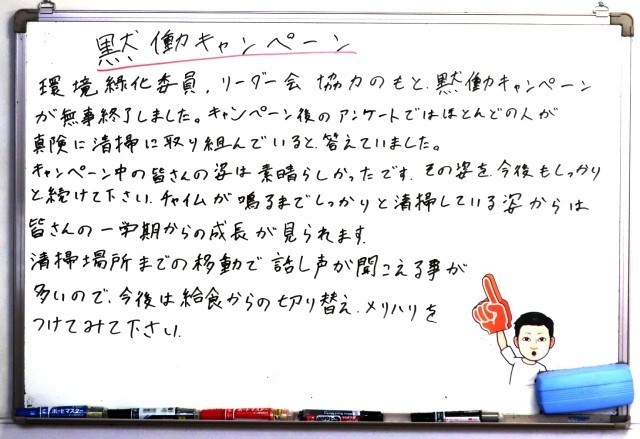 黙働キャンペーン
環境緑化委員，リーダー会 協力のもと、黙働キャンペーン
が無事終了しました。キャンペーン後のアンケートではほとんどの人が
真険に清掃に取り組んでいると、答えていました。
キャンペーン中の皆さんの姿は素晴らしかったです。その姿を今後もしっかり
と続けて下さい。チャイムが鳴るまでしっかりと清掃している姿からは
皆さんの一学期からの成長が見られます。
清掃場所までの移動で話し声が聞こえる事が
多いので、今後は給食からの切り替え、メリハリを
つけてみて下さい。
ボードマスター